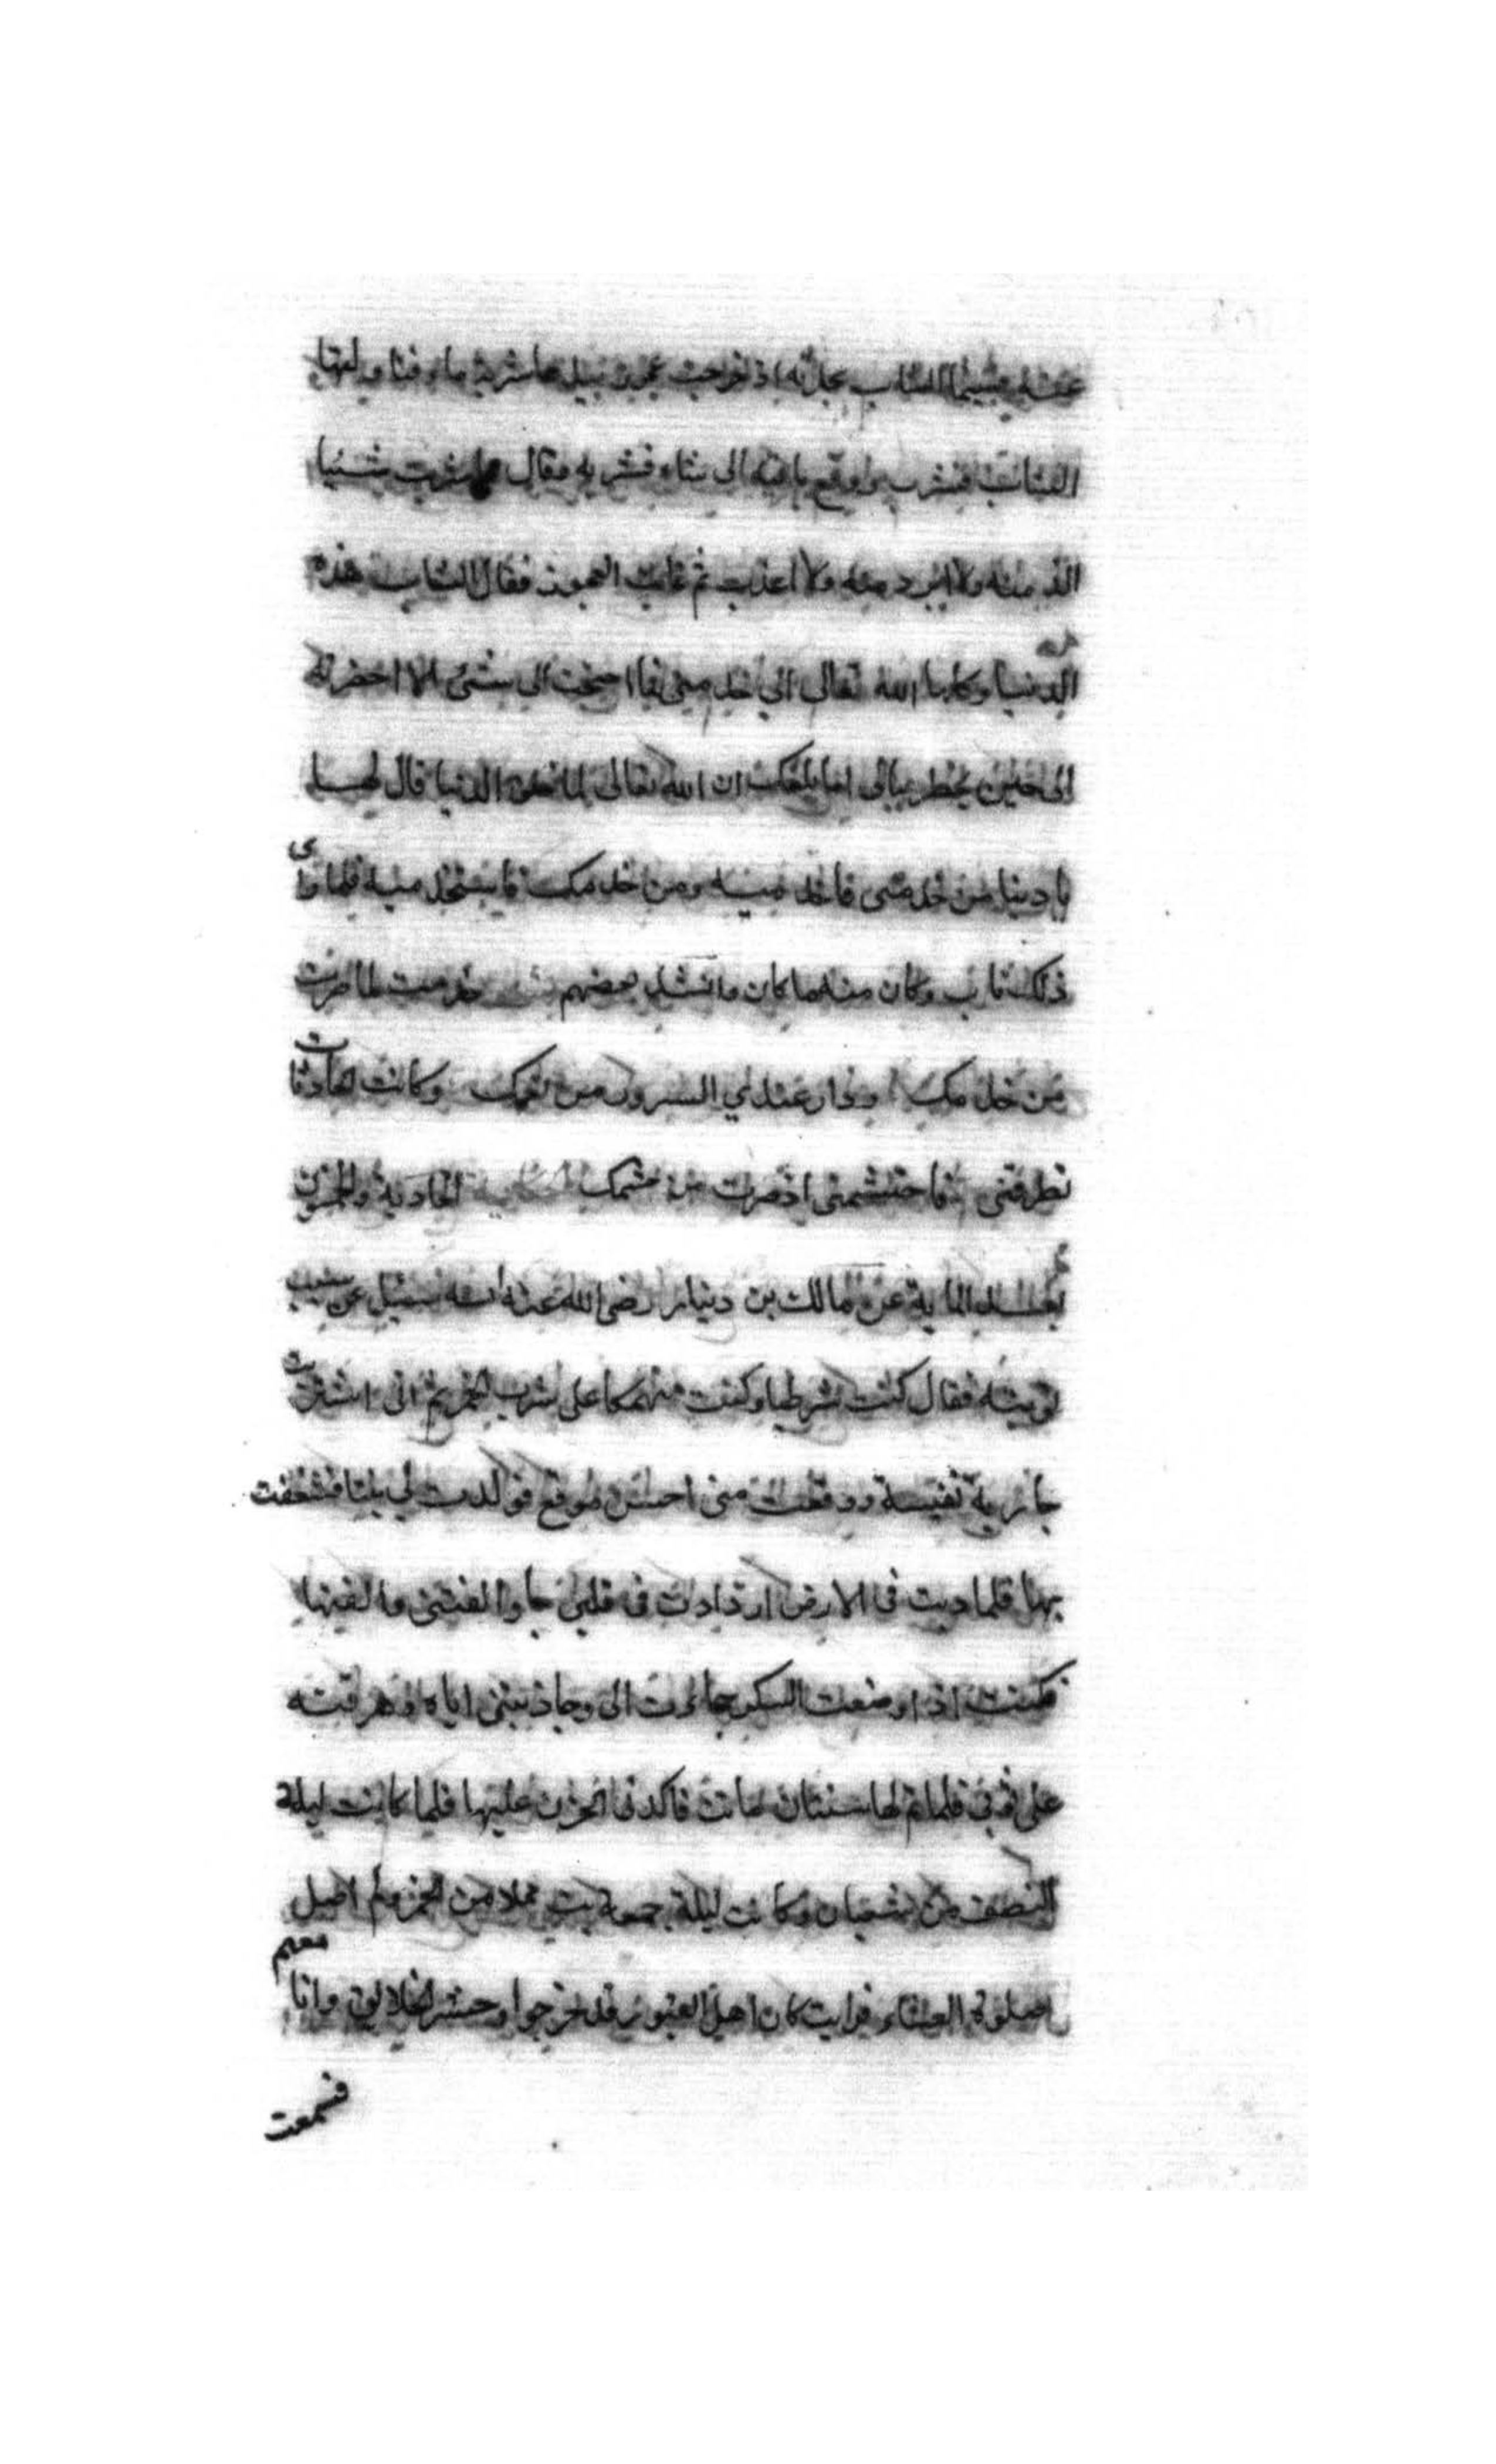 عنه فبينما الشاب يحادثه اذ خرجت عجوز بيدها شربة ماء فناولتها
الشاب فشرب ودفع باقيه الى شاه فشربه فقال ما شربت شيئا
الذ منه ولا ابرد منه ولا اعذب ثم غابت العجوز فقال الشاب هذه
الدنيا وكلها الله تعالى الى خدمتى فما احتجت الى شئ الا احضرته
الى حين يخطر ببالى اما بلغك ان الله تعالى لما خلق الدنيا قال لها
يا دنيا من خدمنى فاخدميه ومن خدمك فاستخدميه فلما رأى
ذلك تاب وكان منه ما كان وانشد بعضهم خدمت لما صرت
من خدمك ودار عندي السرور من نعمك وكانت الحادثات
تطرقنى فاحتشمتنى اذ صرت من حشمك الحكاية الحادية والخمسون
بعد الماية عن مالك بن دينار رضى الله عنه انه سئل عن سبب
توبته فقال كنت شرطيا وكنت منهمكا على شرب الخمر ثم انى اشتريت
جارية نفيسة ووقعت منى احسن موقع فولدت لي بنتا فشغفت
بها فلما دبت فى الارض ازدادت فى قلبى حبا والفتنى والفتها
فكنت اذا وضعت المسكر جاءت الى وجاذبتنى اياه وهرقته
على ثوبى فلما تم لها سنتان ماتت فاكمدنى الحزن عليها فلما كانت ليلة
النصف من شعبان وكانت ليلة جمعة بت ثملا من الخمر ولم اصل
صلوة العشاء فرايت كان اهل القبور قد خرجوا وحشر الخلائق وانا معهم
فسمعت